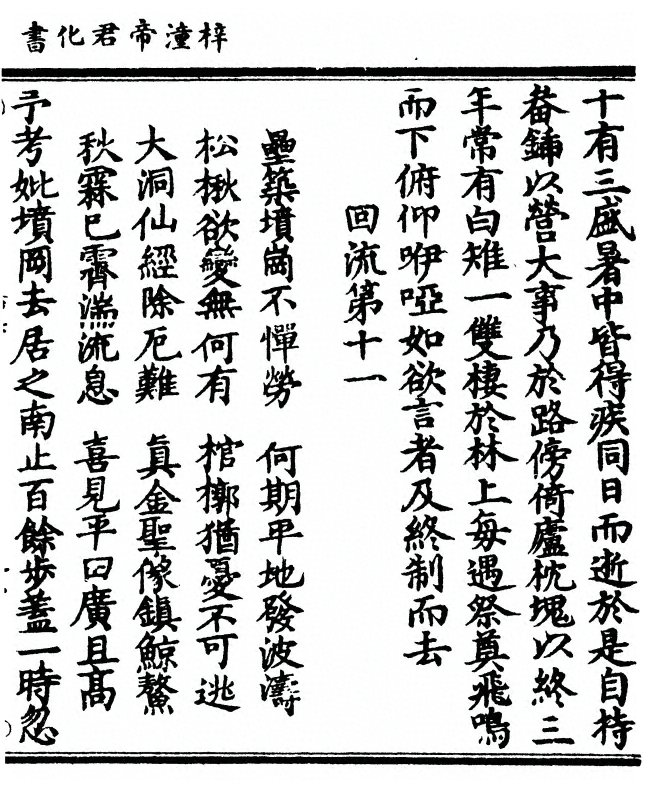 梓潼帝君化書
十有三盛暑中皆得疾同日而逝於是自持
畚鍤以營大事乃於路傍倚廬枕塊以終三
年常有白雉一雙棲於林上每遇祭奠飛鳴
而下俯仰咿啞如欲言者及終制而去
回流第十一
壘築墳崗不憚勞 何期平地發波濤
松楸欲變無何有 棺槨猶憂不可逃
大洞仙經除厄難 真金聖像鎮鯨鰲
秋霖已霽湍流息 喜見平田廣且高
予考妣墳岡去居之南止百餘步蓋一時忽